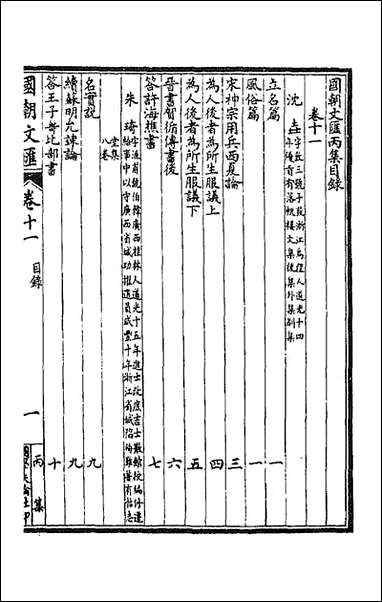 國朝文匯丙集目錄
卷十一
沈垚 字敦三號子敦浙江烏程人道光十四年優貢有落帆樓文集後集外集別集
立名篇 一
風俗篇 一
宋神宗用兵西夏論 三
為人後者為所生服議上 四
為人後者為所生服議下 五
晉書賀循傳書後 六
答許海樵書 七
朱琦 字濂甫號伯韓廣西桂林人道光十五年進士改庶吉士散館授編修遷給事中以守廣西省城功擢道員咸豐十年浙江省城陷殉難著有怡志堂集八卷
名實說 九
續蘇明允諫論 九
答王子壽比部書 十
國朝文匯 卷十一 目錄 一 丙集